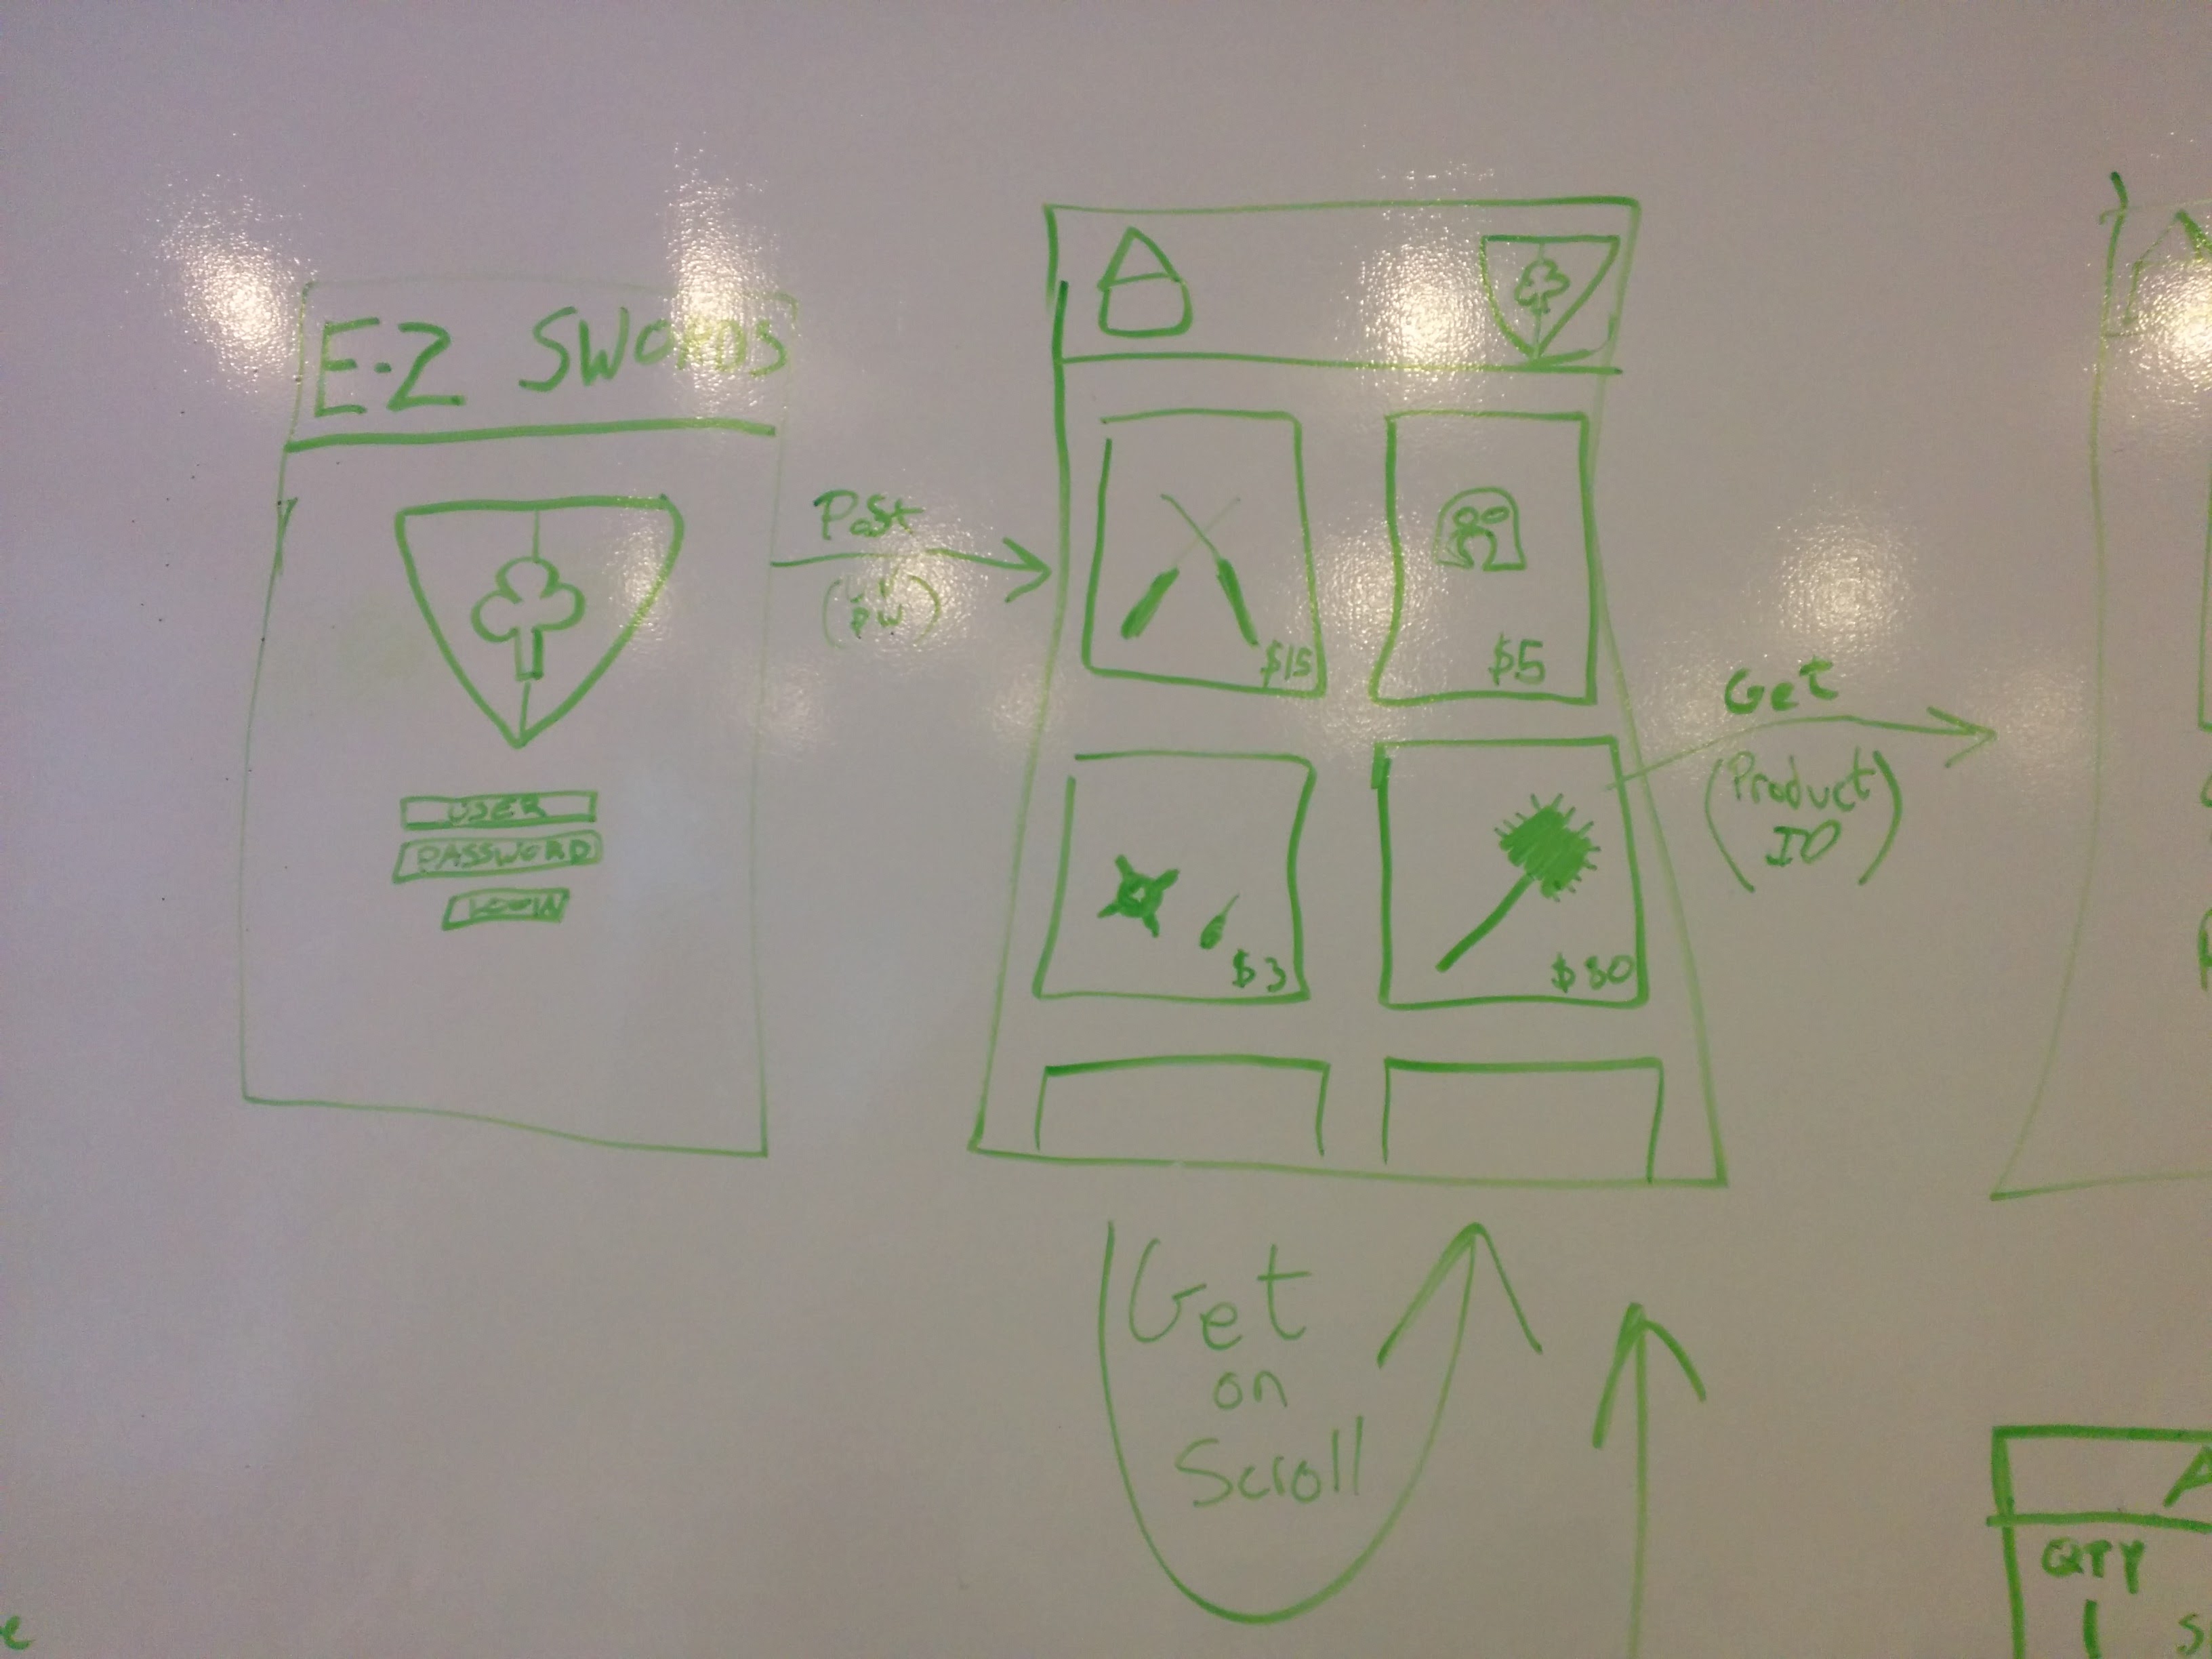 E-Z SWORDS
USER
PASSWORD
LOGIN
Post
PW
$15
$5
$3
$80
Get
(Product
ID)
Get
on
Scroll
QTY
1